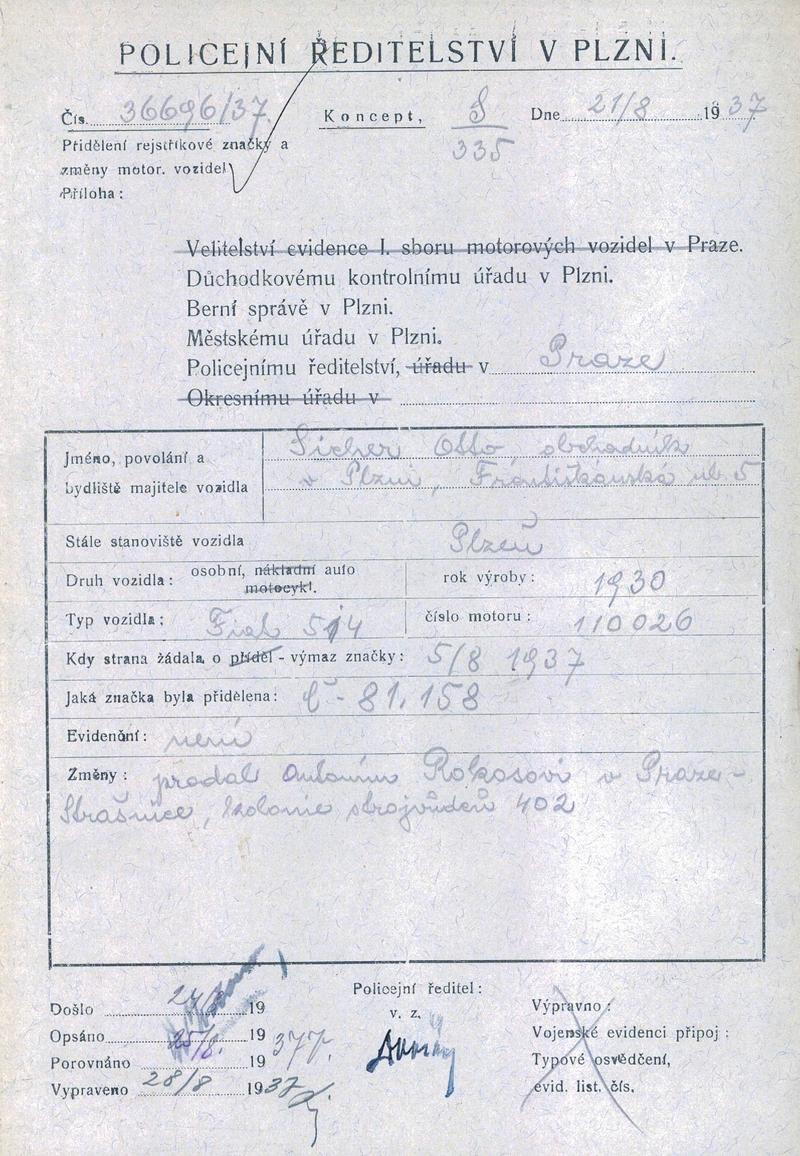 POLICEJNÍ ŘEDITELSTVÍ V PLZNI.
Čís. 36696/37. Koncept, S/335 Dne 21/8 1937
Přidělení rejstříkové značky a
změny motor. vozidel
Příloha:
Velitelství evidence I. sboru motorových vozidel v Praze.
Důchodkovému kontrolnímu úřadu v Plzni.
Berní správě v Plzni.
Městskému úřadu v Plzni.
Policejnímu ředitelství, úřadu v Praze
Okresnímu úřadu v
Jméno, povolání a Sicher Otto, obchodník
bydliště majitele vozidla v Plzni, Františkánská ul. 5
Stále stanoviště vozidla Plzeň
Druh vozidla: osobní, nákladní auto rok výroby: 1930
motocykl.
Typ vozidla: Fiat 514 číslo motoru: 110026
Kdy strana žádala o příděl - výmaz značky: 5/8 1937
Jaká značka byla přidělena: Č - 81.158
Evidenční: není
Změny: prodal Antonínu Rokosovi v Praze-
Strašnice, kolonie strojvůdců 402
Policejní ředitel:
v. z.
Došlo 24/ 19
Opsáno 25/8. 19 37
Porovnáno 19
Vypraveno 28/8 1937
Výpravno:
Vojenské evidenci připoj:
Typové osvědčení,
evid. list. čís.